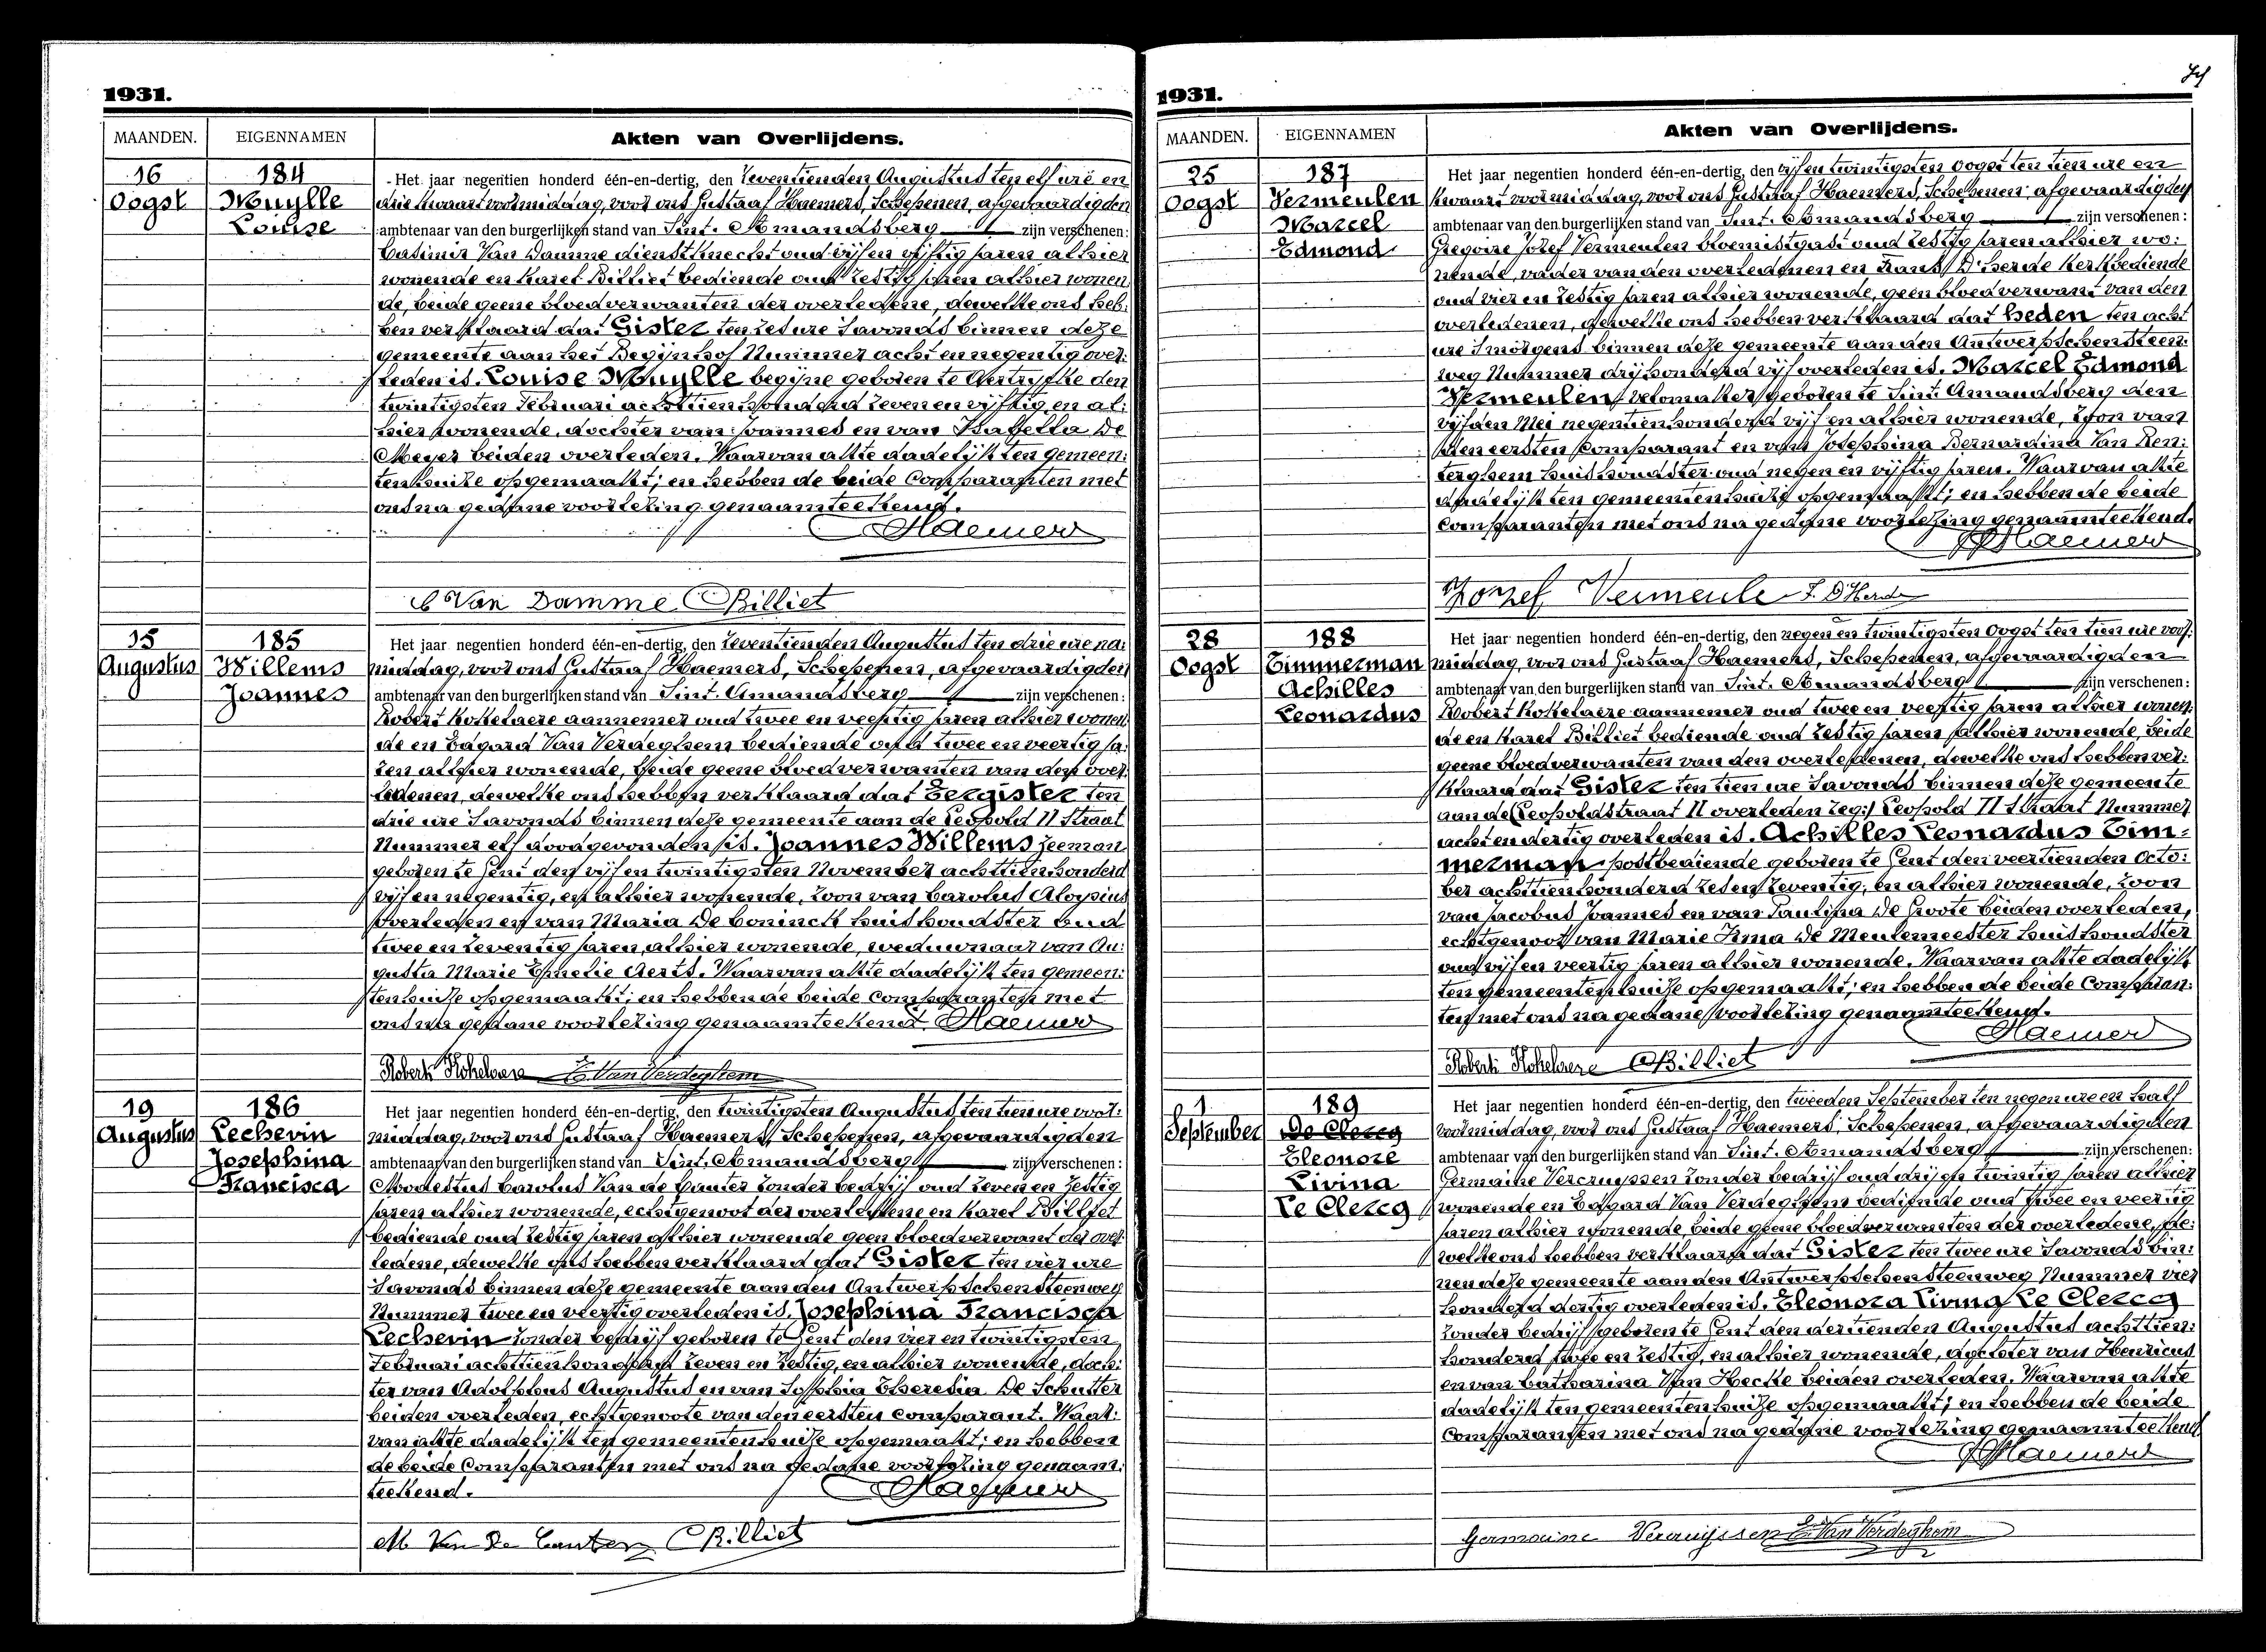 1931.
MAANDEN. EIGENNAMEN Akten van Overlijdens.
16
Oogst
184
Muylle
Louise
Het jaar negentien honderd één-en-dertig, den zeventienden Augustus ten elf ure en
drie kwaart voormiddag, voor ons Gustaaf Haemers, Schepenen, afgevaardigden
ambtenaar van den burgerlijken stand van Sint. Amandsberg zijn verschenen:
Casimir Van Damme dienstknecht oud vijf en vijftig jaren alhier
wonende en Karel Billiet bediende oud zestig jaren alhier wonen
de, beide geene bloedverwanten der overledene, dewelke ons heb:
ben verklaard dat Gister ten zes ure savonds binnen deze
gemeente aan het Begijnhof Nummer acht en negentig over:
leden is. Louise Muylle begijne geboren te Aertrycke den
twintigsten Februari achttien honderd zeven en vijftig, en al:
hier wonende, dochter van Joannes en van Isabella De
Meyer beiden overleden. Waarvan akte dadelijk ten gemeen:
tenhuize opgemaakt; en hebben de beide Comparanten met
ons na gedane voorlezing genaamteekend.
Haemers
C Van Damme Billiet
15
Augustus
185
Willems
Joannes
Het jaar negentien honderd één-en-dertig, den zeventienden Augustus ten drie ure na:
middag, voor ons Gustaaf Haemers, Schepenen, afgevaardigden
ambtenaar van den burgerlijken stand van Sint. Amandsberg zijn verschenen:
Robert Kokelaere aannemer oud twee en veertig jaren alhier wonen
de en Edgard Van Verdeghem bediende oud twee en veertig ja:
ren alhier wonende, beide geene bloedverwanten van den over:
ledenen, dewelke ons hebben verklaard dat Eergister ten
drie ure savonds binnen deze gemeente aan de Leopold II Straat
Nummer elf doodgevonden is. Joannes Willems zeeman
geboren te Gent den vijf en twintigsten November achttien honderd
vijf en negentig, en alhier wonende, zoon van Carolus Aloysius
overleden en van Maria De Coninck huishoudster oud
twee en zeventig jaren, alhier wonende, weduwnaar van Au:
gusta Marie Emelie Aerts. Waarvan akte dadelijk ten gemeen:
tenhuize opgemaakt; en hebben de beide Comparanten met
ons na gedane voorlezing genaamteekend. Haemers
Robert Kokelaere E. Van Verdeghem
19
Augustus
186
Lechevin
Josephina
Francisca
Het jaar negentien honderd één-en-dertig, den twintigsten Augustus ten tien ure voor:
middag, voor ons Gustaaf Haemers, Schepenen, afgevaardigden
ambtenaar van den burgerlijken stand van Sint. Amandsberg zijn verschenen:
Modestus Carolus Van de Canter zonder bedrijf oud zeven en zestig
jaren alhier wonende, echtgenoot der overledene en Karel Billiet
bediende oud zestig jaren alhier wonende geen bloedverwant der over:
ledene, dewelke ons hebben verklaard dat Gister ten vier ure
savonds binnen deze gemeente aan den Antwerpschen Steenweg
Nummer twee en veertig overleden is. Josephina Francisca
Lechevin zonder bedrijf geboren te Gent den vier en twintigsten
Februari achttien honderd zeven en zestig, en alhier wonende, doch:
ter van Adolphus Augustus en van Sophia Theresia De Schutter
beiden overleden, echtgenoote van den eersten Comparant. Waar:
van akte dadelijk ten gemeentenhuize opgemaakt; en hebben
de beide Comparanten met ons na gedane voorlezing genaam:
teekend.
Haemers
M Van De Canter Billiet
1931.
MAANDEN. EIGENNAMEN Akten van Overlijdens.
25
Oogst
187
Vermeulen
Marcel
Edmond
Het jaar negentien honderd één-en-dertig, den vijf en twintigsten Oogst ten tien ure en
kwaart voormiddag, voor ons Gustaaf Haemers, Schepenen, afgevaardigden
ambtenaar van den burgerlijken stand van Sint. Amandsberg zijn verschenen:
Gregoire Jozef Vermeulen bloemistgast oud zestig jaren alhier wo:
nende, vader van den overledenen en Frans D'Herde Kerkbediende
oud vier en zestig jaren alhier wonende, geen bloedverwant van den
overledenen, dewelke ons hebben verklaard dat heden ten acht
ure smorgens binnen deze gemeente aan den Antwerpschen Steen:
weg Nummer drijhonderd vijf overleden is. Marcel Edmond
Vermeulen velomaker geboren te Sint. Amandsberg den
vijfden Mei negentien honderd vijf en alhier wonende, zoon van
den eersten Comparant en van Josephina Bernardina Van Ren:
terghem huishoudster oud negen en vijftig jaren. Waarvan akte
dadelijk ten gemeentenhuize opgemaakt; en hebben de beide
Comparanten met ons na gedane voorlezing genaamteekend.
Haemers
Jozef Vermeule F. D'Herde
28
Oogst
188
Timmerman
Achilles
Leonardus
Het jaar negentien honderd één-en-dertig, den negen en twintigsten Oogst ten tien ure voor:
middag, voor ons Gustaaf Haemers, Schepenen, afgevaardigden
ambtenaar van den burgerlijken stand van Sint. Amandsberg zijn verschenen:
Robert Kokelaere aannemer oud twee en veertig jaren alhier wonen:
de en Karel Billiet bediende oud zestig jaren alhier wonende, beide
geene bloedverwanten van den overledenen, dewelke ons hebben ver:
klaard dat Gister ten tien ure savonds binnen deze gemeente
aan de Leopoldstraat II overleden zeg:/ Leopold II straat Nummer
acht en dertig overleden is. Achilles Leonardus Tim=
merman postbediende geboren te Gent den veertienden Octo:
ber achttien honderd zes en zeventig, en alhier wonende, zoon
van Jacobus Joannes en van Paulina De Groote beiden overleden,
echtgenoot van Marie Irma De Meulemeester huishoudster
oud vijf en veertig jaren alhier wonende. Waarvan akte dadelijk
ten gemeentenhuize opgemaakt; en hebben de beide Comparan:
ten met ons na gedane voorlezing genaamteekend.
Haemers
Robert Kokelaere Billiet
1
September
189
De Clercq
Eleonore
Livina
Le Clercq
Het jaar negentien honderd één-en-dertig, den tweeden September ten negen ure en half
voormiddag, voor ons Gustaaf Haemers, Schepenen, afgevaardigden
ambtenaar van den burgerlijken stand van Sint. Amandsberg zijn verschenen:
Germaine Vercruyssen zonder bedrijf oud drij en twintig jaren alhier
wonende en Edgard Van Verdeghem bediende oud twee en veertig
jaren alhier wonende, beide geene bloedverwanten der overledene, de:
welke ons hebben verklaard dat Gister ten twee ure savonds bin:
nen deze gemeente aan den Antwerpschen Steenweg Nummer vier
honderd dertig overleden is. Eleonora Livina Le Clercq
zonder bedrijf geboren te Gent den dertienden Augustus achttien:
honderd twee en zestig, en alhier wonende, dochter van Henricus
en van Catharina Van Hecke beiden overleden. Waarvan akte
dadelijk ten gemeentenhuize opgemaakt; en hebben de beide
Comparanten met ons na gedane voorlezing genaamteekend
Haemers
Germaine Vercruijssen E. Van Verdeghem